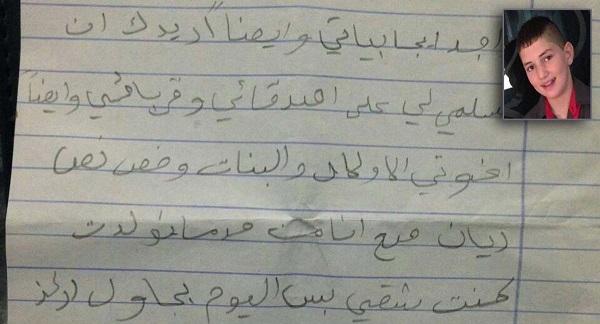 اجد ايجابياتي وايضاً اريدك ان
تسلمي لي على اصدقائي وقريباتي وايضاً
اخوتي الاولاد والبنات
ديان مع انا من يوم ما تولدت
كنت شقي بس اليوم بحاول